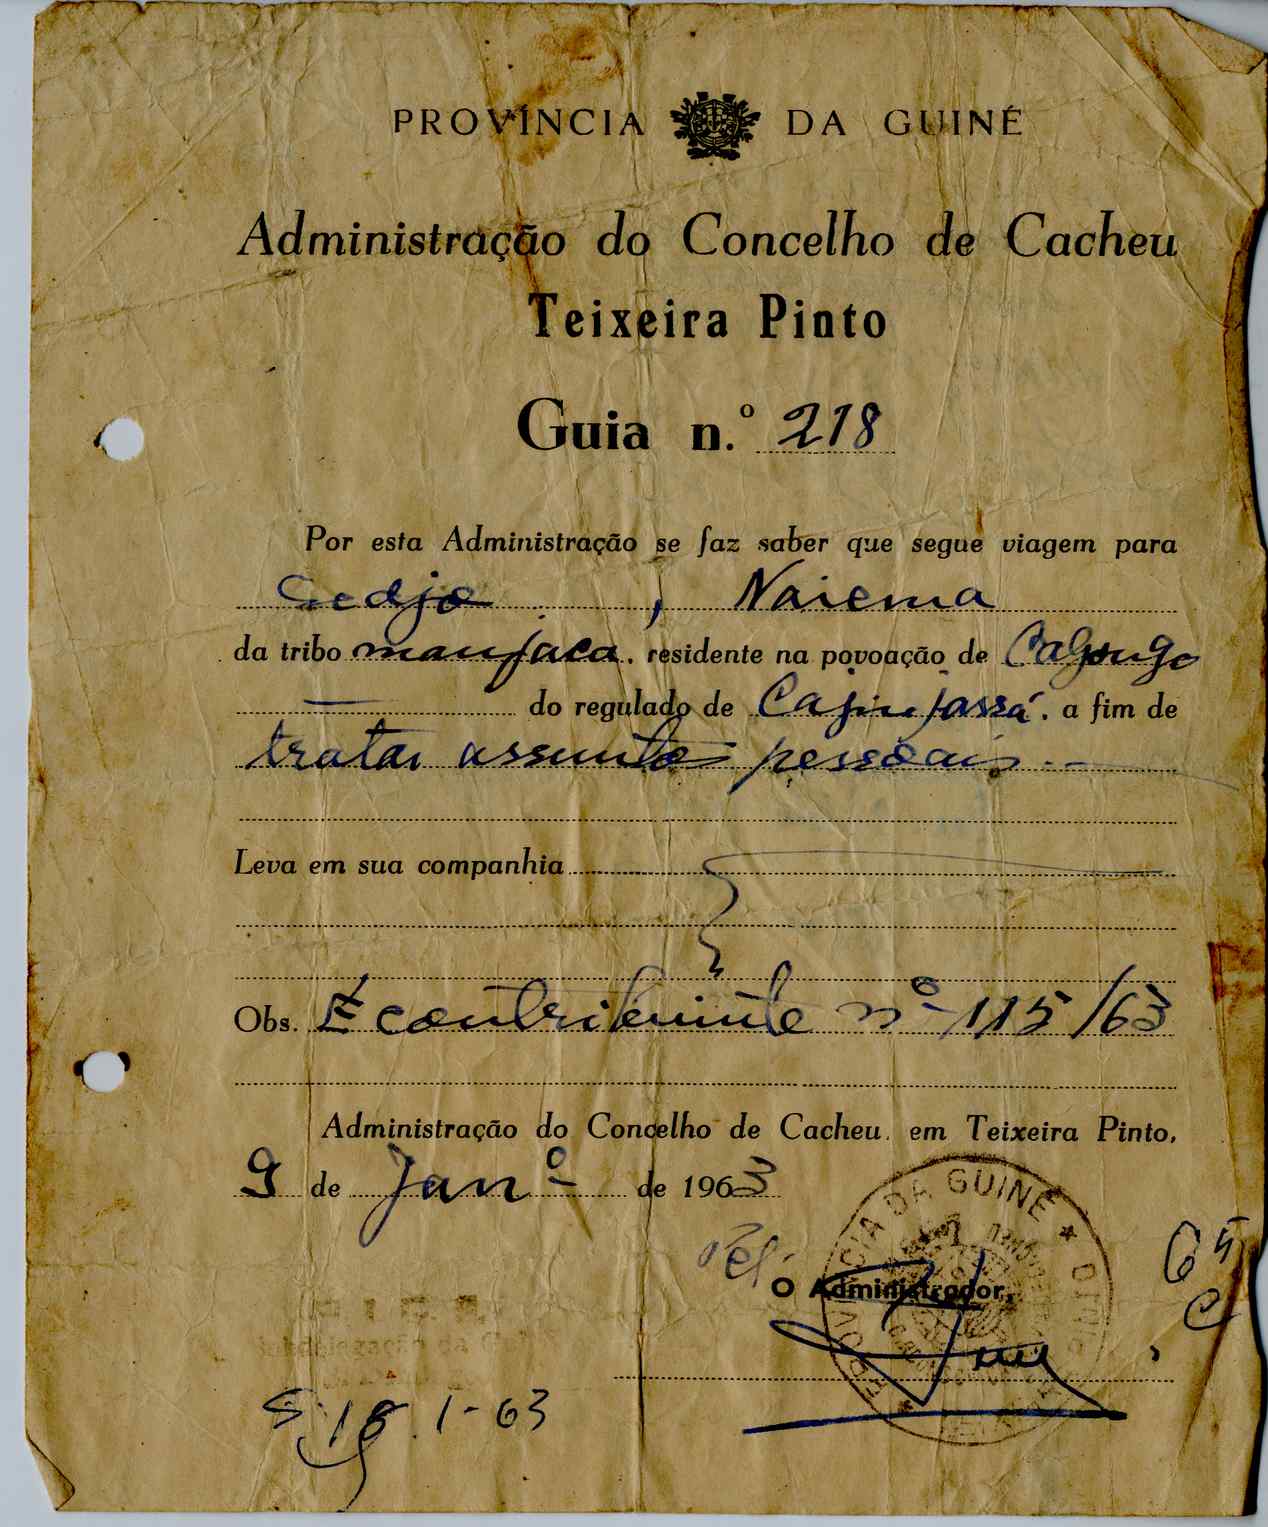 PROVÍNCIA DA GUINÉ
Administração do Concelho de Cacheu
Teixeira Pinto
Guia n.º 218
Por esta Administração se faz saber que segue viagem para
, Naiema
da tribo manjaca, residente na povoação de
— do regulado de a fim de
tratar assuntos pessoais.—
Leva em sua companhia
Obs. É contribuinte nº 115/63
Administração do Concelho de Cacheu, em Teixeira Pinto,
9 de Janº de 1963
Pel'
O Administrador,
PROVÍNCIA DA GUINÉ
1-63